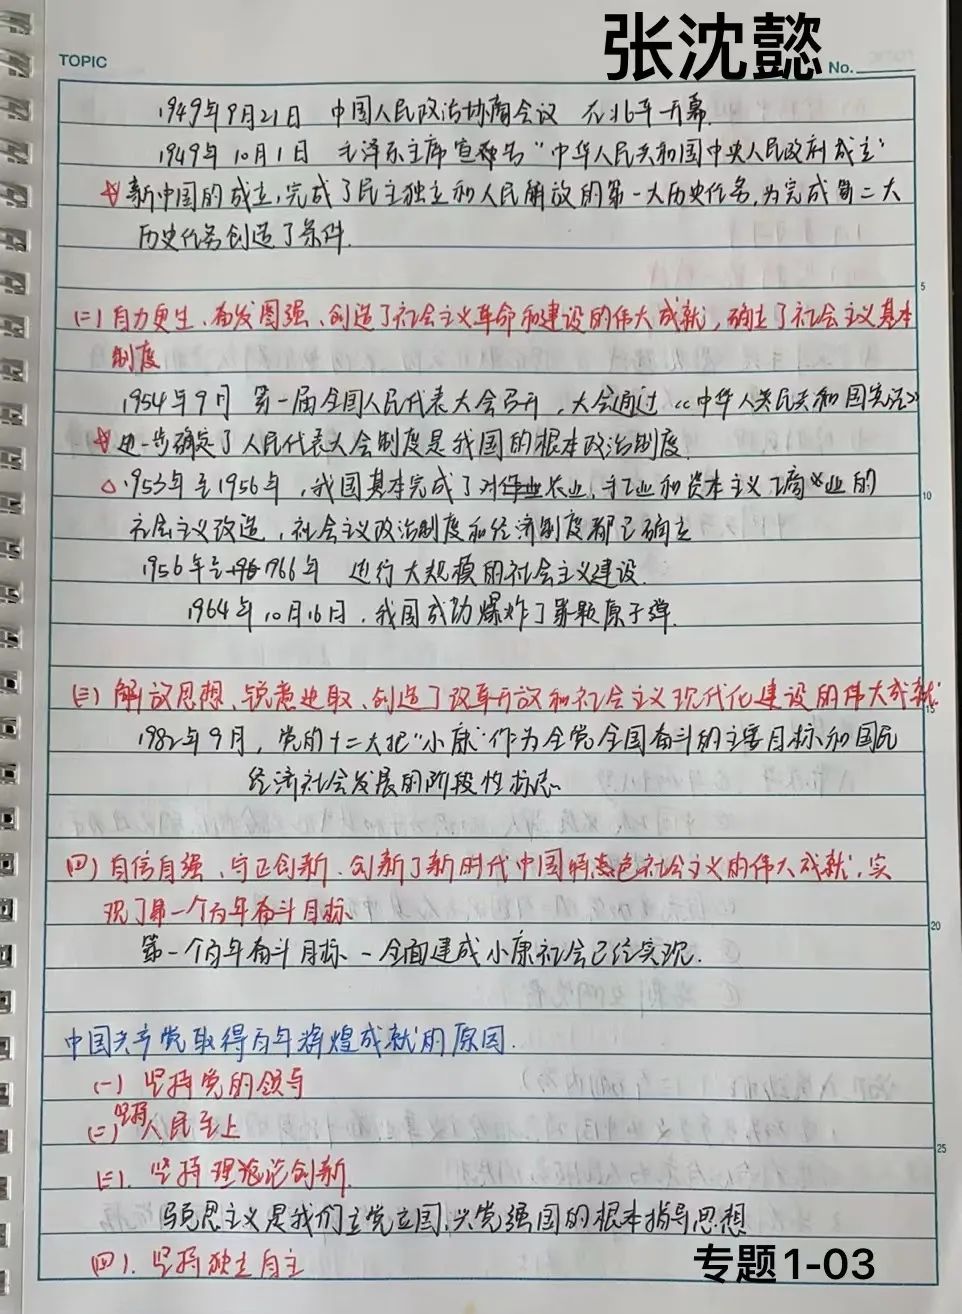 张沈懿
TOPIC
No.
1949年9月21日 中国人民政治协商会议 在北平开幕.
1949年10月1日 毛泽东主席宣称告“中华人民共和国中央人民政府成立”
☆新中国的成立,完成了民主独立和人民解放的第一大历史任务,为完成第二大
历史任务创造了条件.
5
(二)自力更生、奋发图强、创造了社会主义革命和建设的伟大成就,确立了社会主义基本
制度
1954年9月 第一届全国人民代表大会召开,大会通过《中华人民共和国宪法》
☆进一步确定了人民代表大会制度是我国的根本政治制度.
△1953年至1956年,我国基本完成了对农业、手工业和资本主义工商业的
10
社会主义改造,社会主义政治制度和经济制度都已确立
1956年至1966年 进行大规模的社会主义建设.
1964年10月16日,我国成功爆炸了第一颗原子弹.
(三)解放思想、锐意进取、创造了改革开放和社会主义现代化建设的伟大成就
15
1982年9月,党的十二大把“小康”作为全党全国奋斗的主要目标和国民
经济社会发展的阶段性标志.
(四)自信自强、守正创新、创新了新时代中国特色社会主义的伟大成就,实
现了第一个百年奋斗目标.
20
第一个百年奋斗目标 - 全面建成小康社会已经实现.
中国共产党取得百年辉煌成就的原因.
(一)坚持党的领导
(二)坚持人民至上
25
(三).坚持理论创新.
马克思主义是我们立党立国、兴党强国的根本指导思想
(四).坚持独立自主
专题1-03